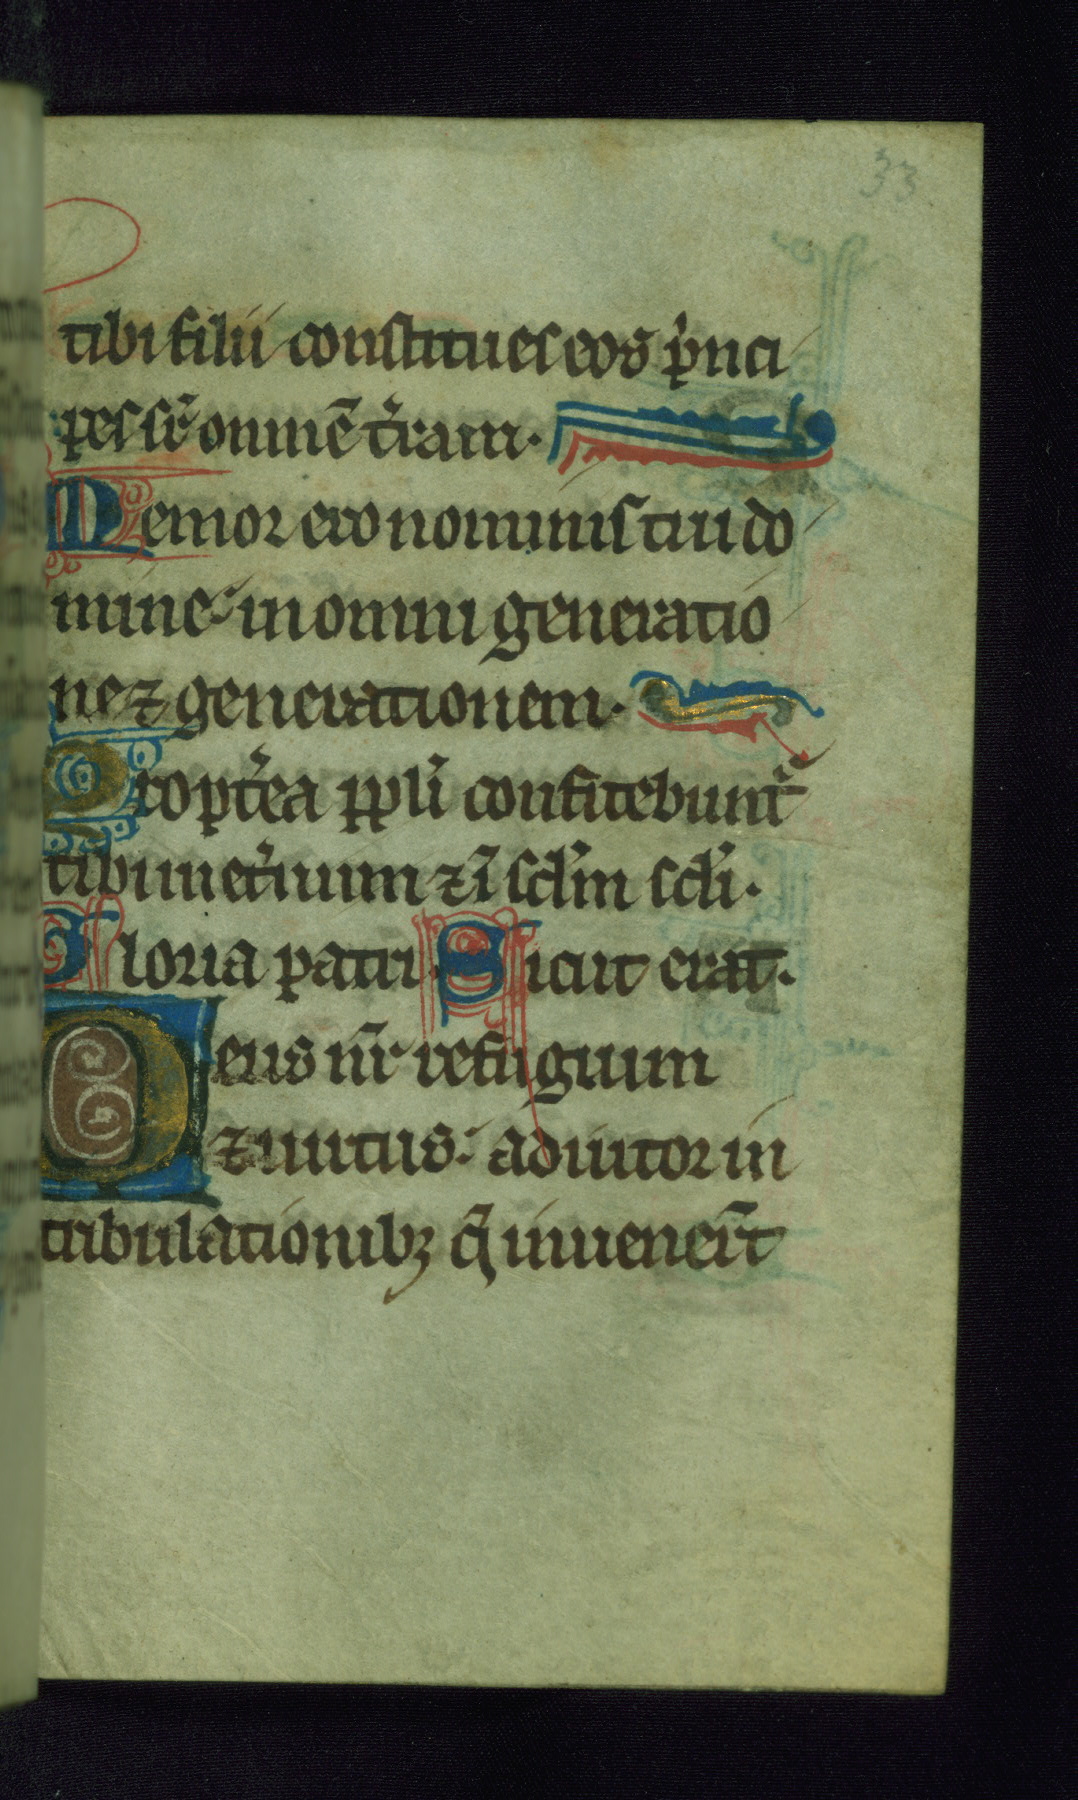 33
tibi filii constitues eos p͛nci
pes sr̄ omnē t͛ram.
Memor ero nominis tui do
mine: in omni generatio
ne ⁊ generationem.
Propt͛ea ppl̄i confitebunt͛
tibi inet͛num ⁊ ī scl̄m scl̄i.
Gloria patri. Sicut erat.
Deus nr̄ refugium
⁊ uirtus: adiutor in
tribulationibꝫ q̄ inuener̄t